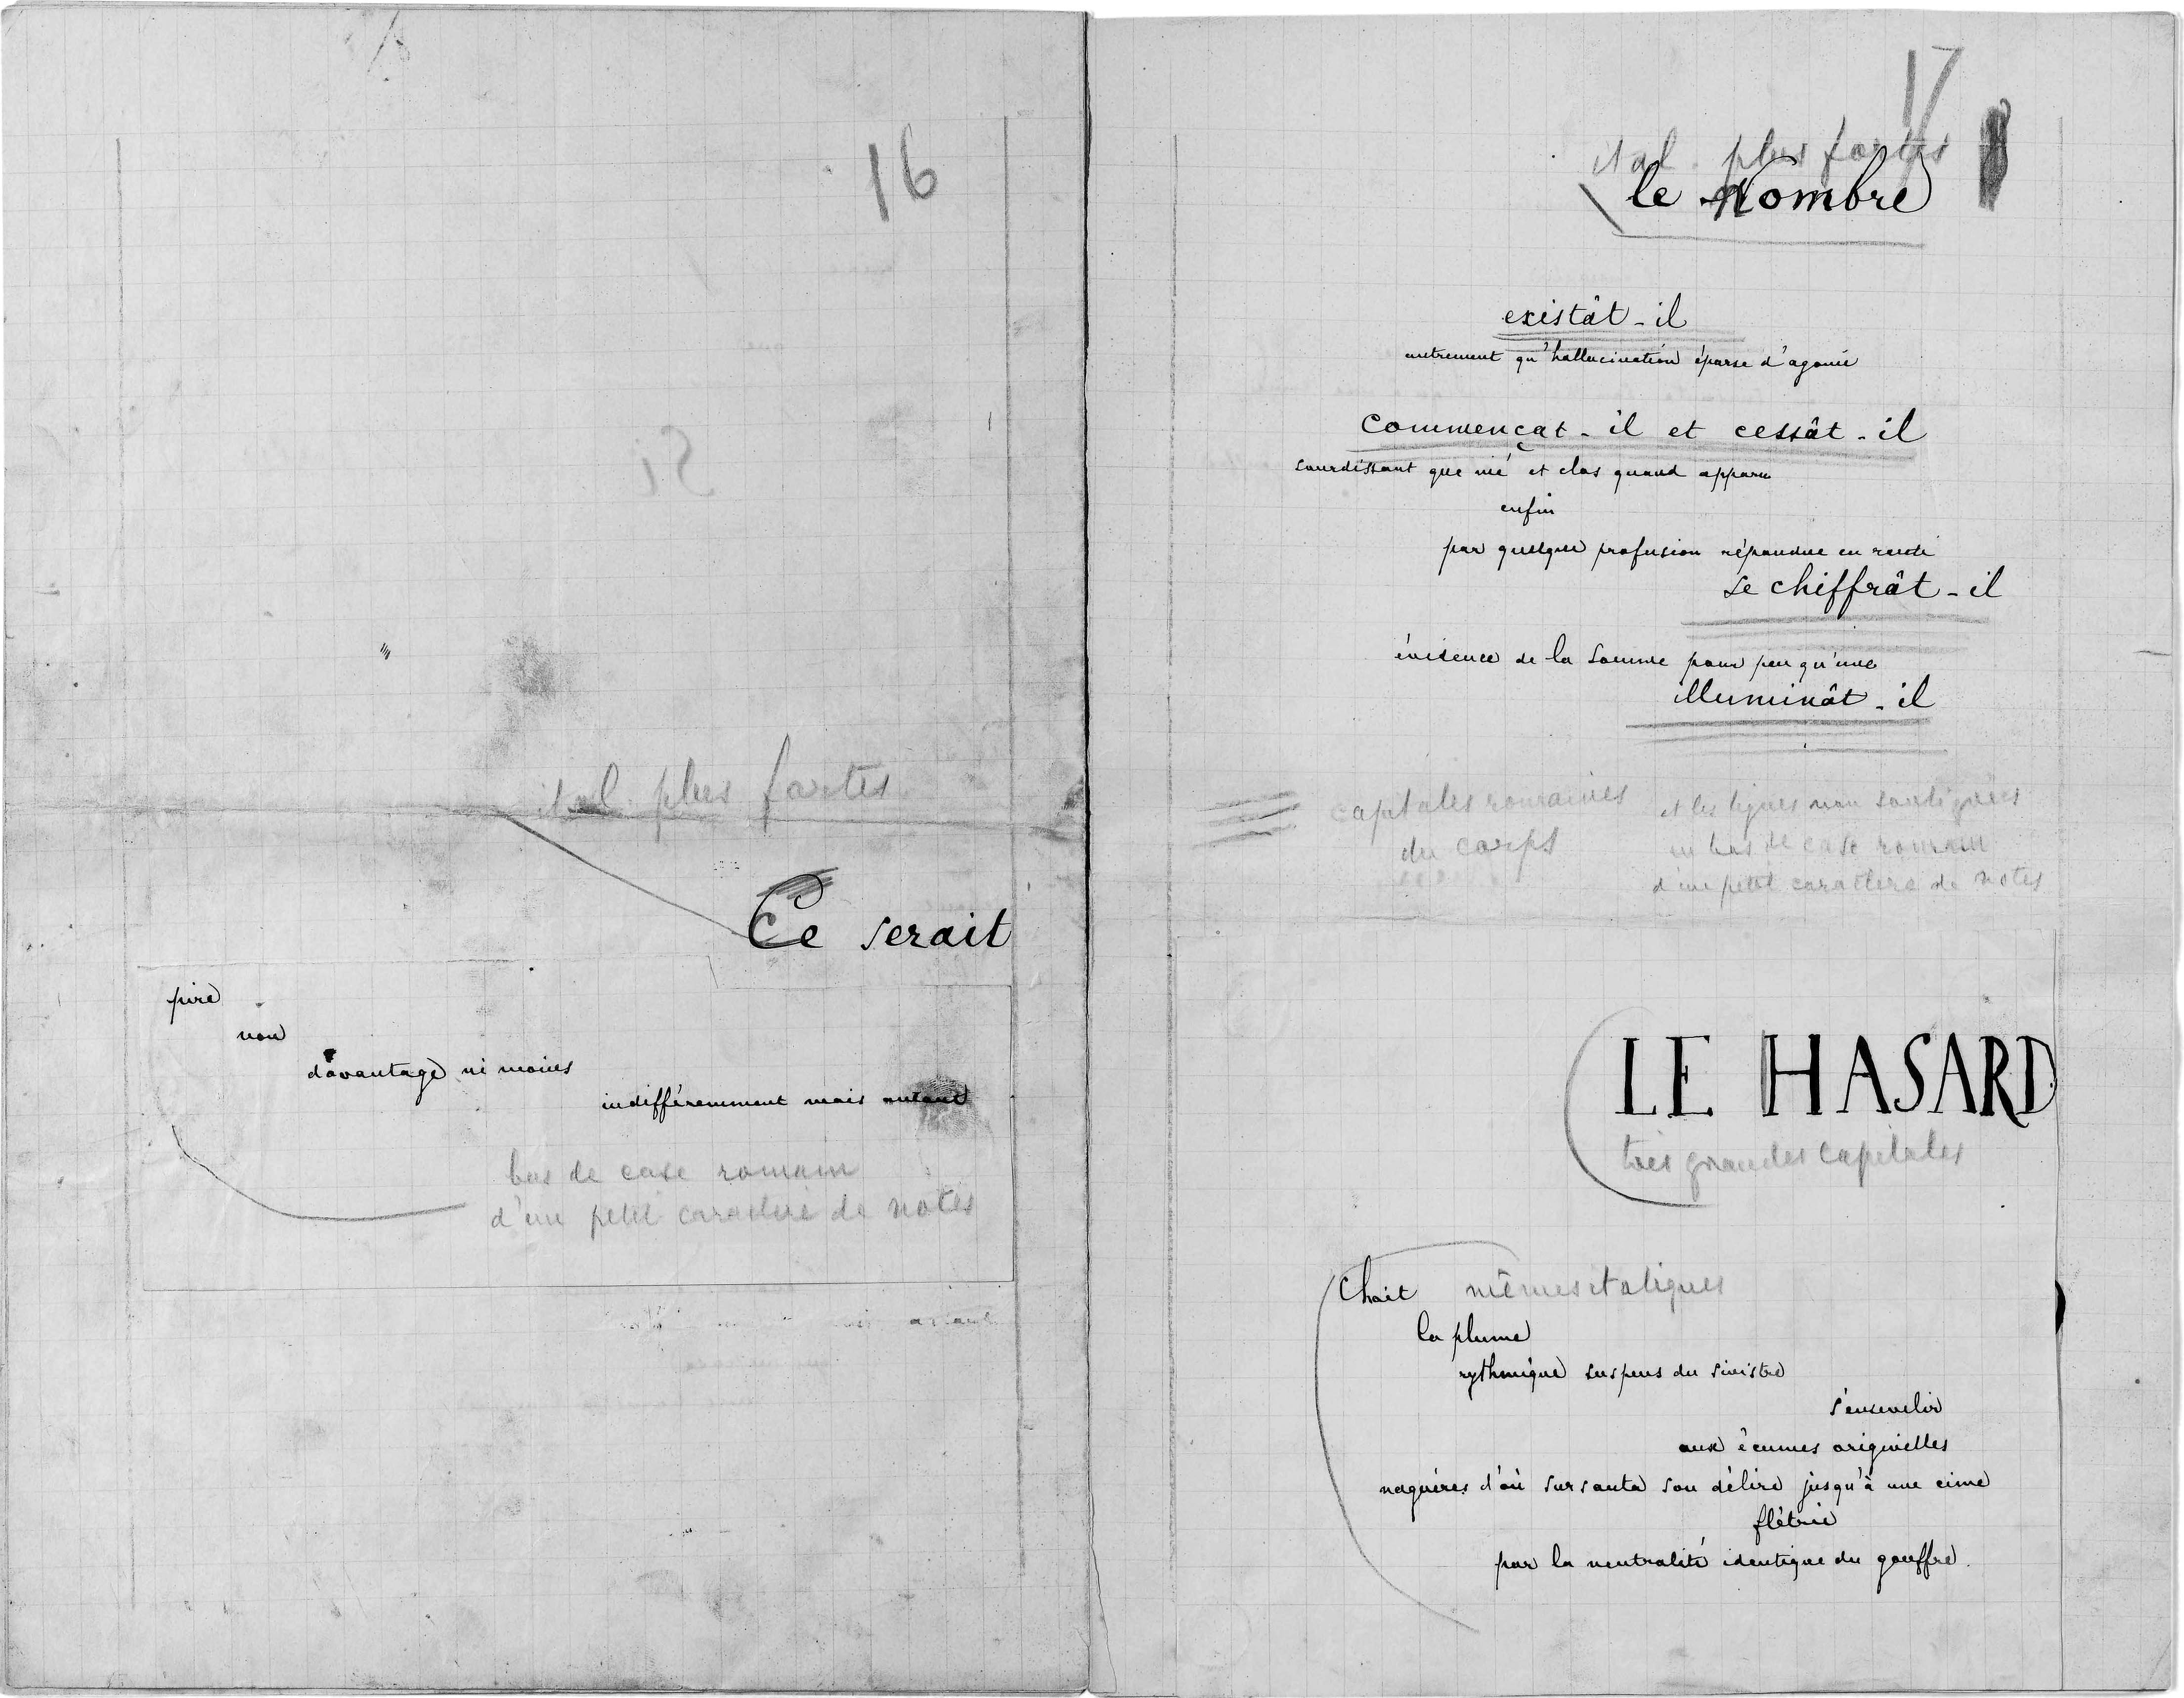 16
ital. plus fortes
Ce serait
pire
non
davantage ni moins
indifféremment mais autant
bas de case romain
d'un petit caractère de notes
17
ital. plus fortes
le Nombre
existât-il
autrement qu'hallucination éparse d'agonie
commençat-il et cessât-il
sourdissant que nié et clos quand apparu
enfin
par quelque profusion répandue en rareté
se chiffrât-il
évidence de la somme pour peu qu'une
illuminât-il
capitales romaines
du corps
et les lignes non soulignées
en bas de case romain
d'un petit caractère de notes
LE HASARD
très grandes capitales
Choit mêmes italiques
la plume
rythmique suspens du sinistre
s'ensevelir
aux écumes originelles
naguères d'où sursauta son délire jusqu'à une cime
flétrie
par la neutralité identique du gouffre.